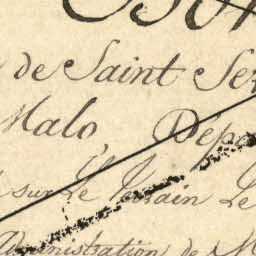 de Saint Ser
Malo Dépa
sur Le Terrain Le
Administration de M